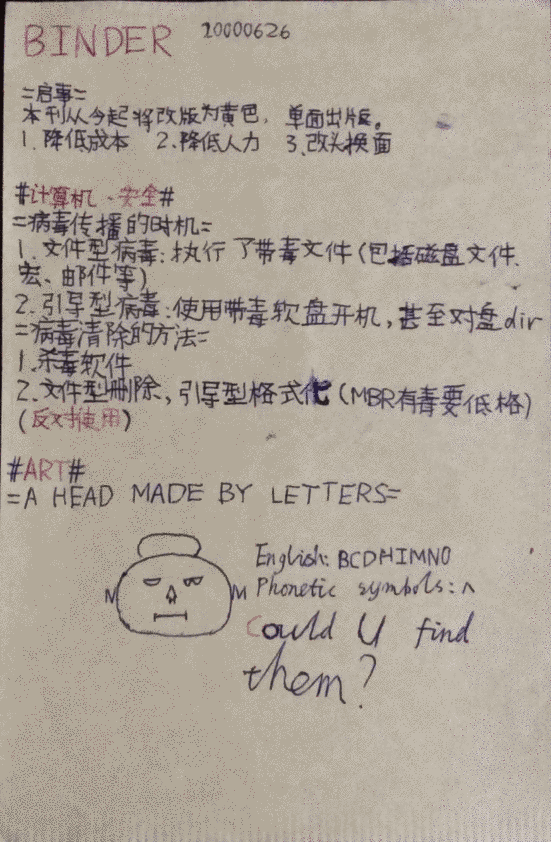 BINDER 20000626
=启事=
本刊从今起将改版为黄色，单面出版。
1.降低成本 2.降低人力 3.改头换面
#计算机·安全#
=病毒传播的时机=
1.文件型病毒:执行了带毒文件(包括磁盘文件、
宏、邮件等)
2.引导型病毒:使用带毒软盘开机,甚至对盘dir
=病毒清除的方法=
1.杀毒软件
2.文件型删除,引导型格式化(MBR有毒要低格)
(反对使用)
#ART#
=A HEAD MADE BY LETTERS=
English: BCDHIMNO
N M Phonetic symbols: ʌ
Could U find
them?